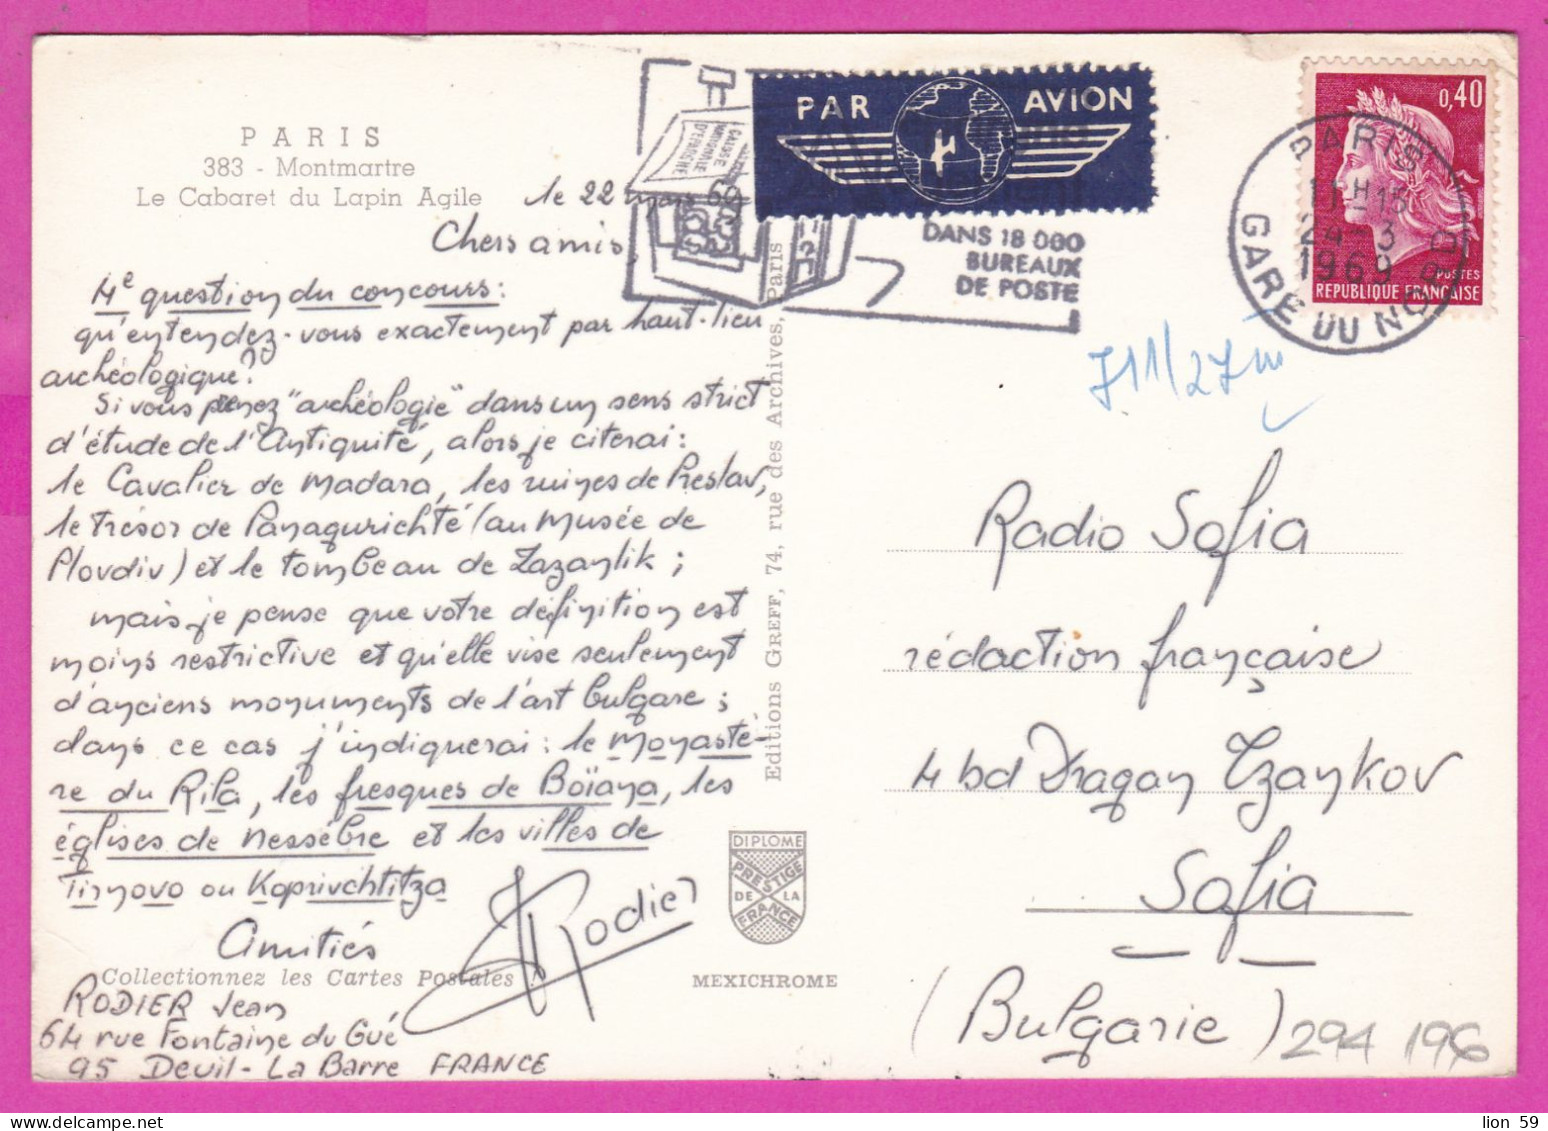 PARIS
383 - Montmartre
Le Cabaret du Lapin Agile
le 22 mars 69
Chers amis,
4e question du concours:
qu'entendez-vous exactement par haut-lieu
archéologique?
Si vous prenez "archéologie" dans un sens strict
d'étude de l'Antiquité, alors je citerai:
le Cavalier de Madara, les ruines de Preslav,
le trésor de Panagurichté (au Musée de
Plovdiv) et le tombeau de Kazanlik;
mais je pense que votre définition est
moins restrictive et qu'elle vise seulement
d'anciens monuments de l'art bulgare;
dans ce cas j'indiquerai: le Monastè-
re du Rila, les fresques de Boïana, les
églises de Nessèbre et les villes de
Tirnovo ou Koprivchtitza
Amitiés
JRodier
Collectionnez les Cartes Postales !
RODIER Jean
64 rue Fontaine du Gué
95 Deuil-La Barre FRANCE
Editions GREFF, 74, rue des Archives, Paris
DIPLOME
PRESTIGE
DE LA
FRANCE
MEXICHROME
CAISSE
NATIONALE
D'EPARGNE
DANS 18 000
BUREAUX
DE POSTE
PAR AVION
0,40
POSTES
REPUBLIQUE FRANÇAISE
PARIS
24-3
1969
GARE DU NORD
711/27m
Radio Sofia
rédaction française
4 bd Dragan Tzankov
Sofia
(Bulgarie)
294 196
lion 59